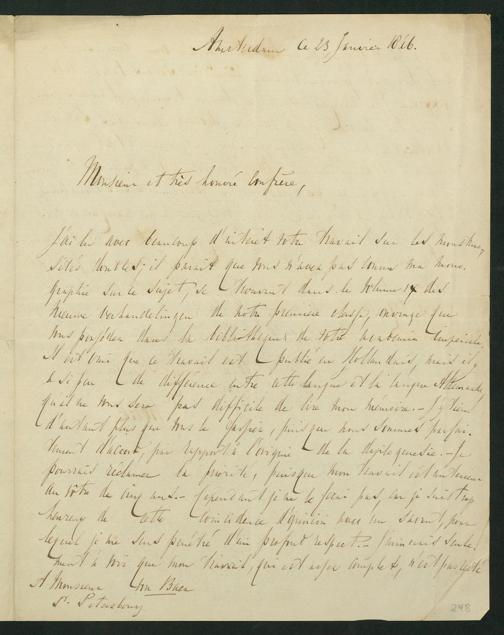 Amsterdam ce 23 Janvier 1846.
Monsieur et très honoré Confrère,
J'ai lu avec beaucoup d'intérêt votre travail sur les monstruo-
sités doubles; il parait que vous n'avez pas connu ma mono-
graphie sur le sujet, se trouvant dans le volume des
nieuwe verhandelingen de notre première classe, ouvrage que
vous possédez dans la bibliothèque de votre académie Impériale,
Il est vrai que ce travail est publié en Hollandais, mais il y
a si peu de différence entre cette langue et la langue Allemande
qu'il ne vous sera pas difficile de lire mon mémoire. - J'y tiens
d'autant plus que vous le, puisque nous sommes parfai-
tement d'accord, par rapport à l'origine de la diplogenesie. - Je
pourrais réclamer la priorité, puisque mon travail est antérieur
au vôtre de cinq ans. - Cependant je ne le ferai pas, car je suis trop
heureux de cette coincidence d'opinion avec un savant, pour
lequel je me sens pénétré d'un profond respect. - J'aimerais seule-
ment à voir que mon travail, qui est assez complet, n'est pas
A Monsieur von Baer
St. Petersbourg
248